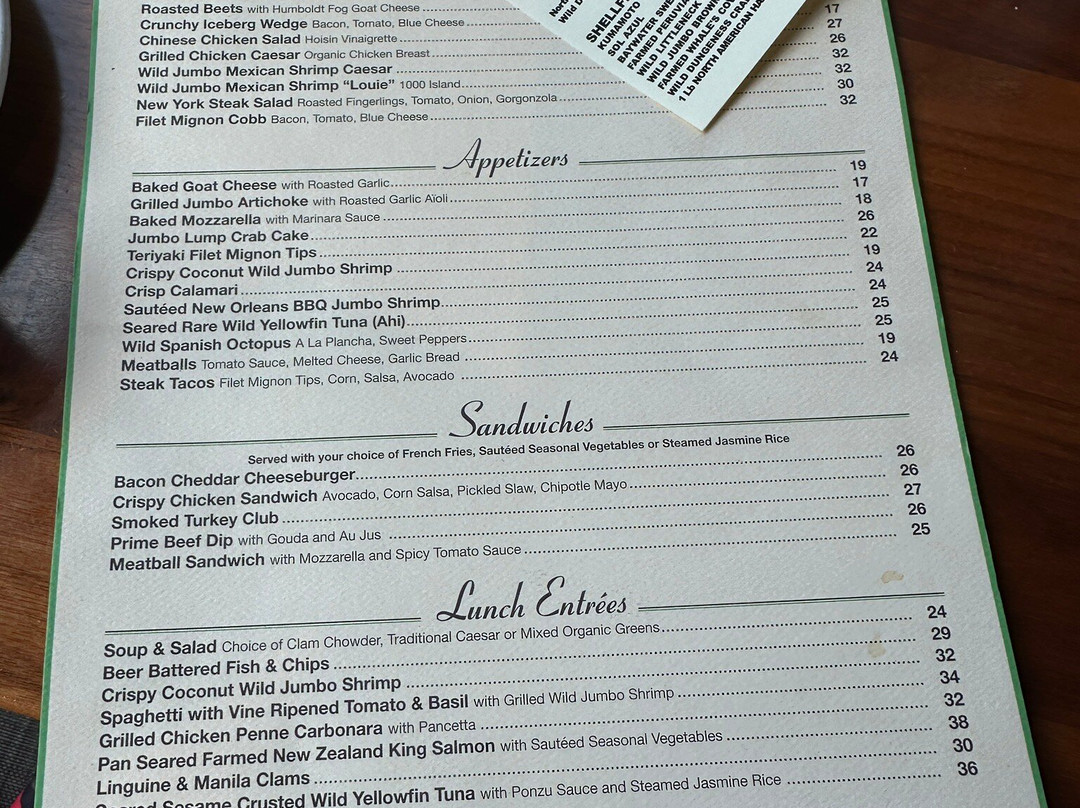 Roasted Beets with Humboldt Fog Goat Cheese
Crunchy Iceberg Wedge Bacon, Tomato, Blue Cheese 17
Chinese Chicken Salad Hoisin Vinaigrette 27
Grilled Chicken Caesar Organic Chicken Breast 26
Wild Jumbo Mexican Shrimp Caesar 32
Wild Jumbo Mexican Shrimp “Louie” 1000 Island 32
New York Steak Salad Roasted Fingerlings, Tomato, Onion, Gorgonzola 30
Filet Mignon Cobb Bacon, Tomato, Blue Cheese 32
Wild D
SHELLF
KUMAMOTO
SOL AZUL
BAYWATER SWE
FARMED PERUVIA
WILD LITTLENECK
WILD JUMBO BROW
FARMED WHALE'S CO
WILD DUNGENESS CRA
1 Lb NORTH AMERICAN HA
Appetizers
Baked Goat Cheese with Roasted Garlic 19
Grilled Jumbo Artichoke with Roasted Garlic Aïoli 17
Baked Mozzarella with Marinara Sauce 18
Jumbo Lump Crab Cake 26
Teriyaki Filet Mignon Tips 22
Crispy Coconut Wild Jumbo Shrimp 19
Crisp Calamari 24
Sautéed New Orleans BBQ Jumbo Shrimp 24
Seared Rare Wild Yellowfin Tuna (Ahi) 25
Wild Spanish Octopus A La Plancha, Sweet Peppers 25
Meatballs Tomato Sauce, Melted Cheese, Garlic Bread 19
Steak Tacos Filet Mignon Tips, Corn, Salsa, Avocado 24
Sandwiches
Served with your choice of French Fries, Sautéed Seasonal Vegetables or Steamed Jasmine Rice
Bacon Cheddar Cheeseburger 26
Crispy Chicken Sandwich Avocado, Corn Salsa, Pickled Slaw, Chipotle Mayo 26
Smoked Turkey Club 27
Prime Beef Dip with Gouda and Au Jus 26
Meatball Sandwich with Mozzarella and Spicy Tomato Sauce 25
Lunch Entrées
Soup & Salad Choice of Clam Chowder, Traditional Caesar or Mixed Organic Greens 24
Beer Battered Fish & Chips 29
Crispy Coconut Wild Jumbo Shrimp 32
Spaghetti with Vine Ripened Tomato & Basil with Grilled Wild Jumbo Shrimp 34
Grilled Chicken Penne Carbonara with Pancetta 32
Pan Seared Farmed New Zealand King Salmon with Sautéed Seasonal Vegetables 38
Linguine & Manila Clams 30
Seared Sesame Crusted Wild Yellowfin Tuna with Ponzu Sauce and Steamed Jasmine Rice 36